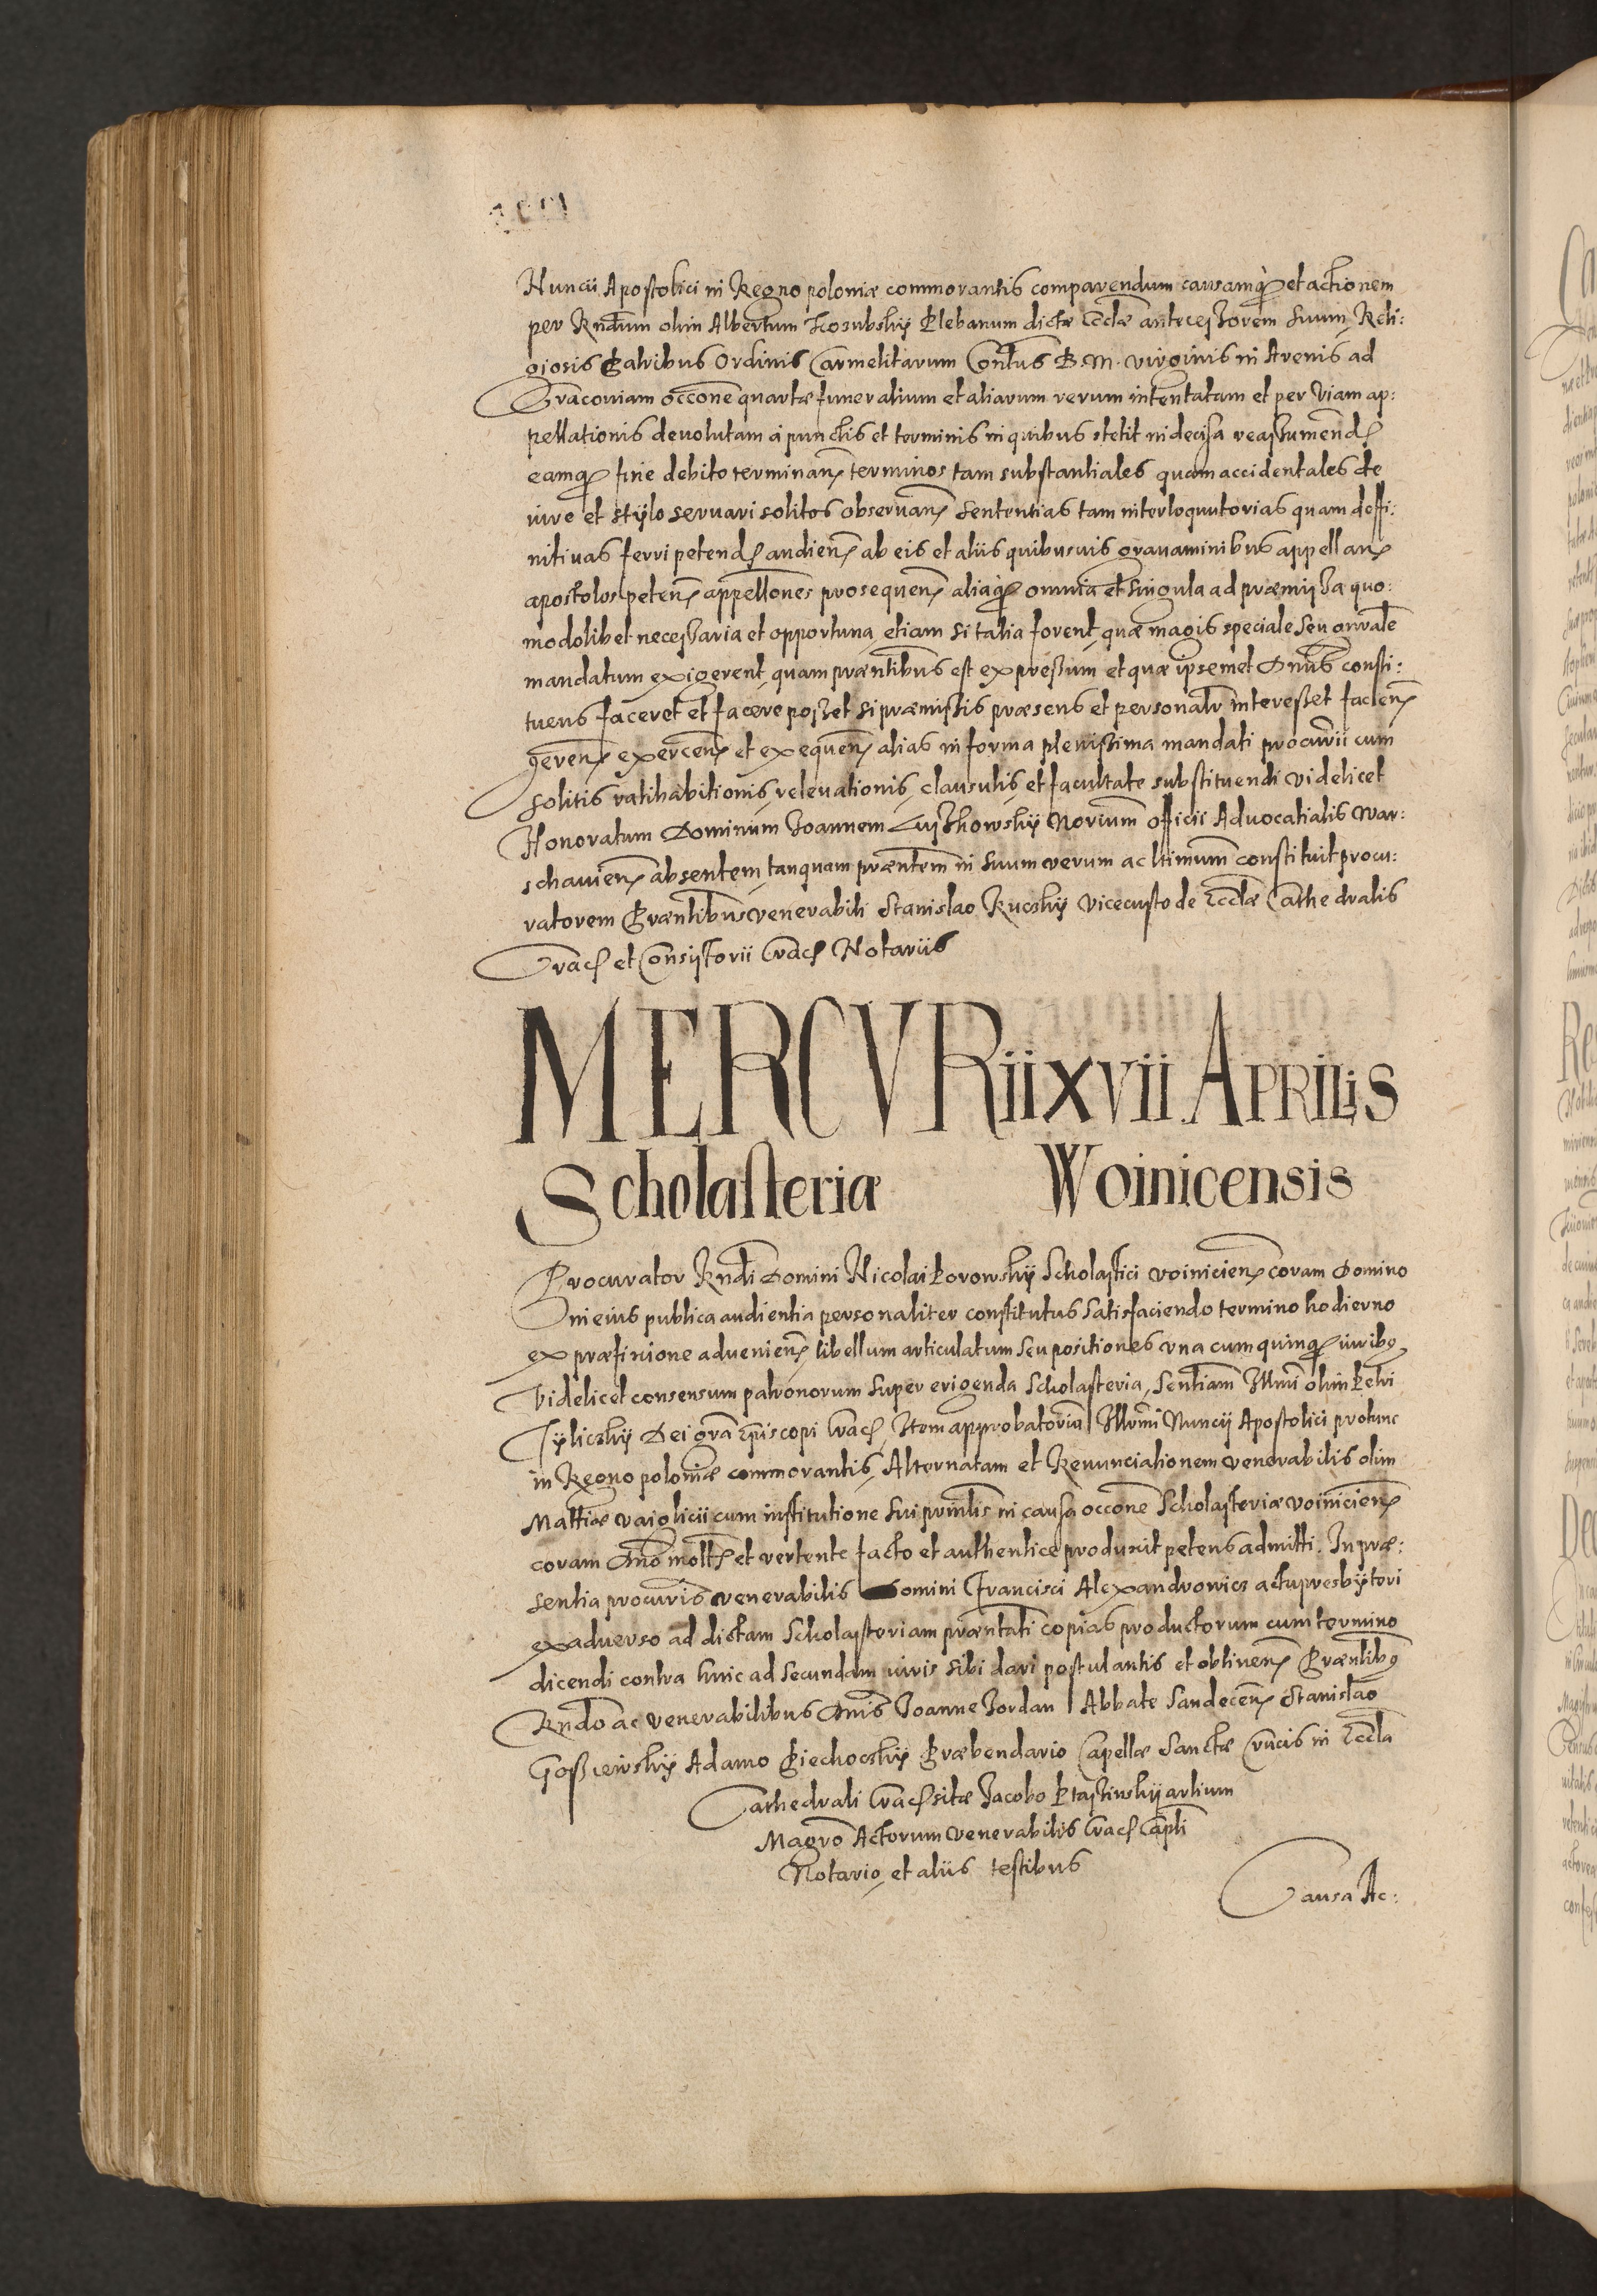 Nuncii Apostolici in Regno poloniæ commorantis comparendum causamq̀ꝫ et actionem
per Rndum olim Albertum Kosubsky Plebanum dictæ Ecclæ antecessorem suum Reli:
giosis Patribus Ordinis Carmelitarum Contus B. M. virginis in Arenis ad
Cracoviam occone quartæ funeralium et aliarum rerum intentatam et per viam ap:
pellationis devolutam à punctis et terminis in quibus stetit indecisa reassumendꝫ
eamqꝫ fine debito terminanꝫ terminos tam substantiales quam accidentales de
iure et stylo servari solitos observanꝫ Sententias tam interloquutorias quam deffi:
nitivas ferri petendꝫ audienꝫ ab eis et aliis quibusvis gravaminibus appellanꝫ
apostolos petenꝫ appellones prosequenꝫ aliaqꝫ omnia et singula ad præmissa quo:
modolibet necessaria et opportuna, etiam si talia forent, quæ magis speciale seu gnrale
mandatum exigerent, quam præntibus est expressum, et quæ ipsemet Dnus consti:
tuens faceret et facere posset si præmissis præsens et personalr interesset facienꝫ
gerenꝫ exercenꝫ et exequenꝫ alias in forma plenissima mandati procurii cum
solitis ratihabitionis, relevationis, clausulis, et facultate substituendi videlicet
Honoratum Dominum Joannem Norium officii Advocatialis War:
schavienꝫ absentem, tanquam præntem in suum verum ac ltimum constituit procu:
ratorem Præntibus venerabili Stanislao Kucsky Vicecustode Ecclæ Cathedralis
Cracꝫ et Consistorii Cracꝫ Notariis
MERCVRii xvii. APRILiS
Scholasteriæ Woinicensis
Procurator Rndi Domini Nicolai Porowsky Scholastici voinicienꝫ coram Domino
In eius publica audientia personaliter constitutus satisfaciendo termino hodierno
ex præfinione advenienꝫ libellum articulatum seu positiones una cum quinqꝫ iuribꝰ
videlicet consensum patronorum super erigenda Scholasteria, Sentiam Illmi olim Petri
Tylicsky Dei gra Episcopi Cracꝫ, Item approbatoriam Illrmi Nuncii Apostolici protunc
in Regno poloniæ commorantis, Alternatam et Renunciationem venerabilis olim
Matthiæ vaiglicii cum institutione sui prinlis in causa occone Scholasteriæ voinicienꝫ
coram Dno mottꝫ et vertente facto et authentice produxit petens admitti. In præ:
sentia procuris venerabilis Domini Francisci Alexandrowicz actu presbyteri
exadverso ad dictam Scholasteriam præntati copias productorum cum termino
dicendi contra hinc ad secundam iuris sibi dari postulantis et obtinenꝫ Præntibꝰ
Rndo ac venerabilibus Dnis Joanne Jordan Abbate Sandecenꝫ Stanislao
Gossiewsky Adamo Piechocsky Præbendario Capellæ Sanctæ Crucis in Eccla
Cathedrali Cracꝫ sitæ Jacobo Ptassinsky artium
Magro Actorum venerabilis Cracꝫ Capli
Notario, et aliis testibus
Causa Ac: